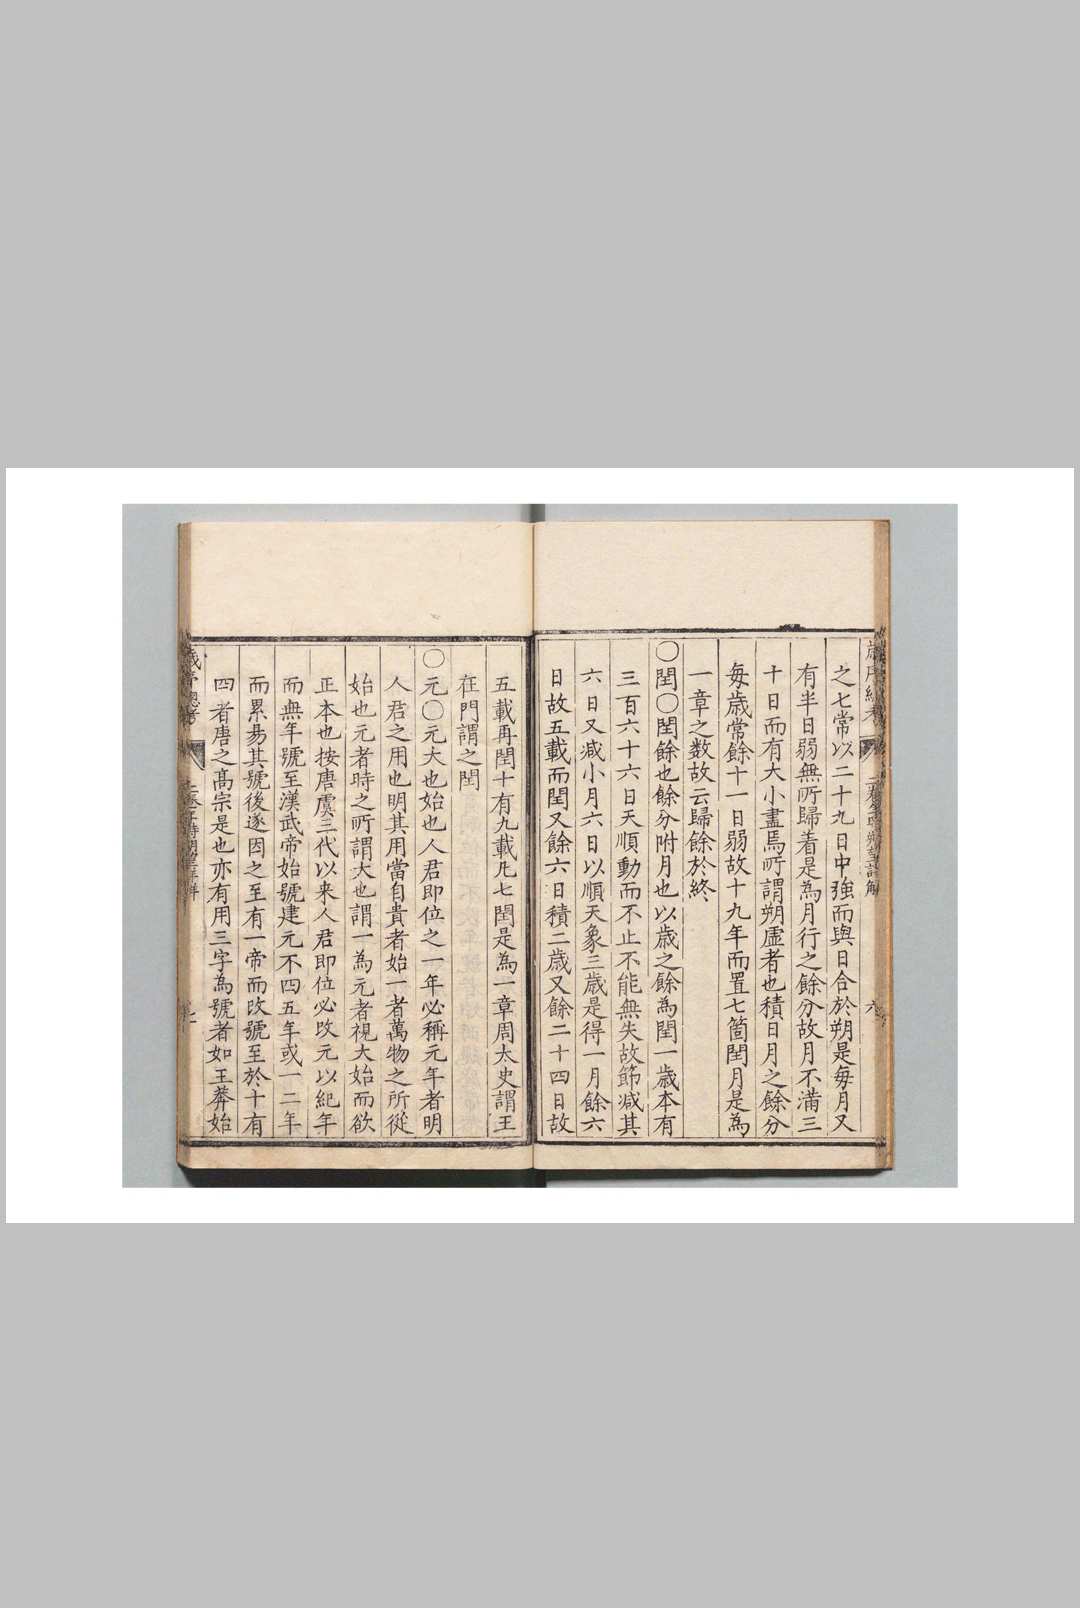 之七常以二十九日中強而與日合於朔是每月又
有半日弱無所歸着是為月行之餘分故月不滿三
十日而有大小盡焉所謂朔虛者也積日月之餘分
每歲常餘十一日弱故十九年而置七箇閏月是為
一章之数故云歸餘於終
〇閏〇閏餘也餘分附月也以歲之餘為閏一歲本有
三百六十六日天順動而不止不能無失故節减其
六日又减小月六日以順天象三歲是得一月餘六
日故五載而閏又餘六日積二歲又餘二十四日故
五載再閏十有九載凡七閏是為一章周太史謂王
在門謂之閏
〇元〇元大也始也人君即位之一年必稱元年者明
人君之用也明其用當自貴者始一者萬物之所從
始也元者時之所謂大也謂一為元者視大始而欲
正本也按唐虞三代以来人君即位必改元以紀年
而無年號至漢武帝始號建元不四五年或一二年
而累昜其號後遂因之至有一帝而改號至於十有
四者唐之高宗是也亦有用三字為號者如王莽始
歲序總考
七